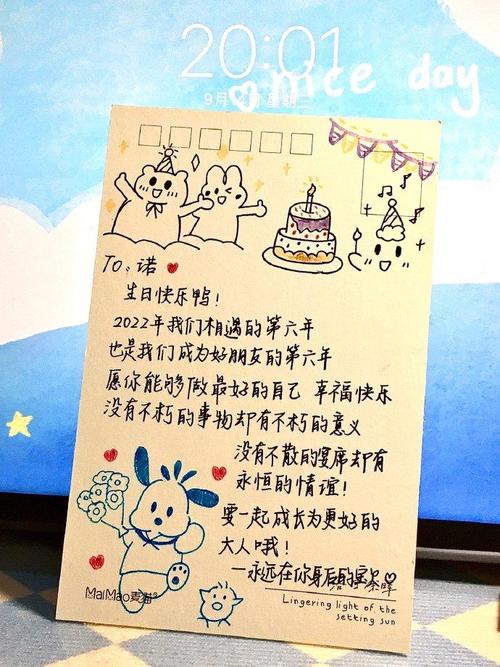 20:01
nice day
9月
To: 诺
生日快乐鸭！
2022年我们相遇的第六年
也是我们成为好朋友的第六年
愿你能够做最好的自己 幸福快乐
没有不朽的事物却有不朽的意义
没有不散的宴席却有
永恒的情谊！
要一起成长为更好的
大人哦！
—永远在你身后的
MaiMao麦猫
Lingering light of the
setting sun